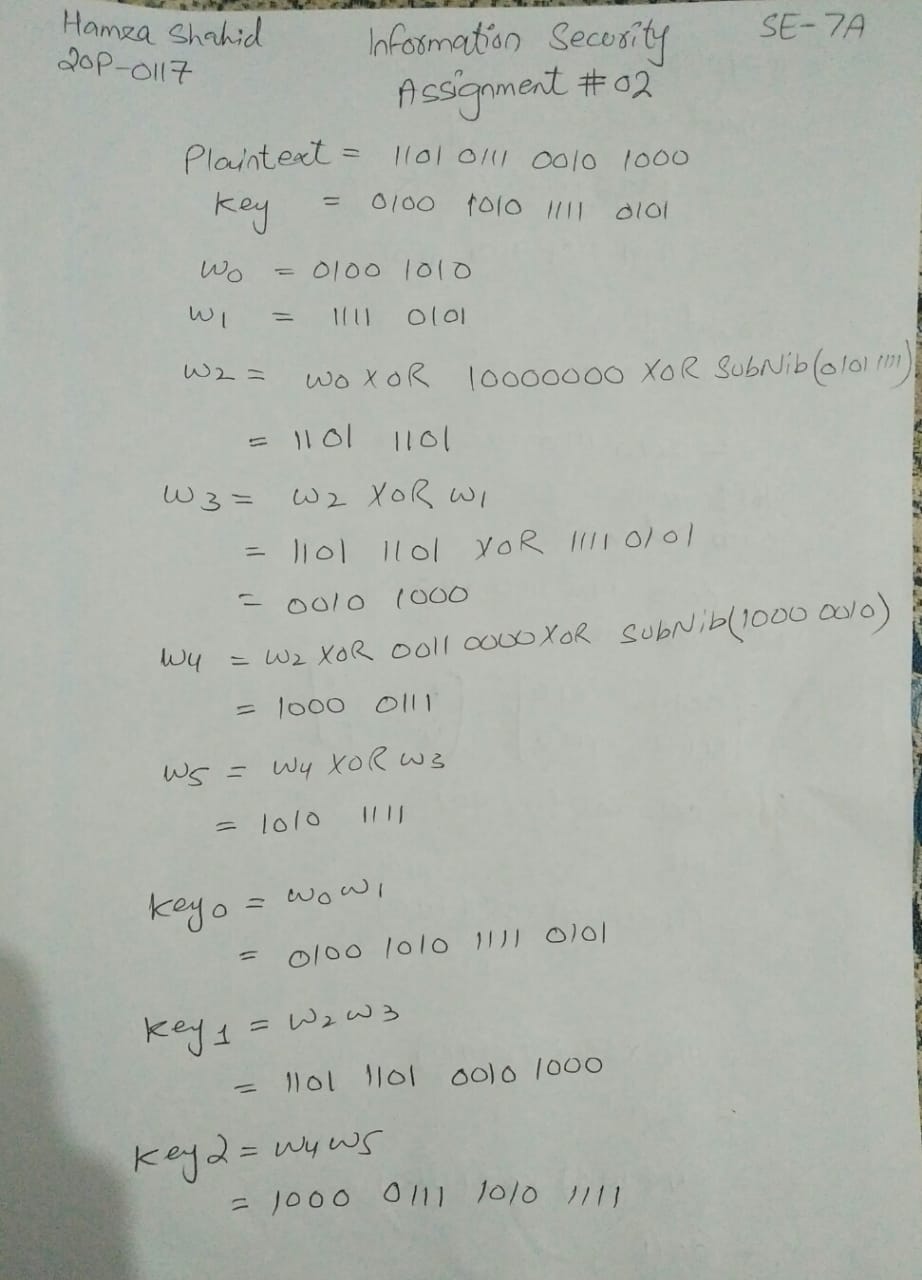 Hamza Shahid
20P-0117
Information Security
Assignment #02
SE-7A
Plaintext = 1101 0111 0010 1000
Key = 0100 1010 1111 0101
W0 = 0100 1010
W1 = 1111 0101
W2 = W0 XOR 10000000 XOR SubNib(0101 1111)
= 1101 1101
W3 = W2 XOR W1
= 1101 1101 XOR 1111 0101
= 0010 1000
W4 = W2 XOR 0011 0000 XOR SubNib(1000 0010)
= 1000 0111
W5 = W4 XOR W3
= 1010 1111
Key0 = W0 W1
= 0100 1010 1111 0101
Key1 = W2 W3
= 1101 1101 0010 1000
Key2 = W4 W5
= 1000 0111 1010 1111